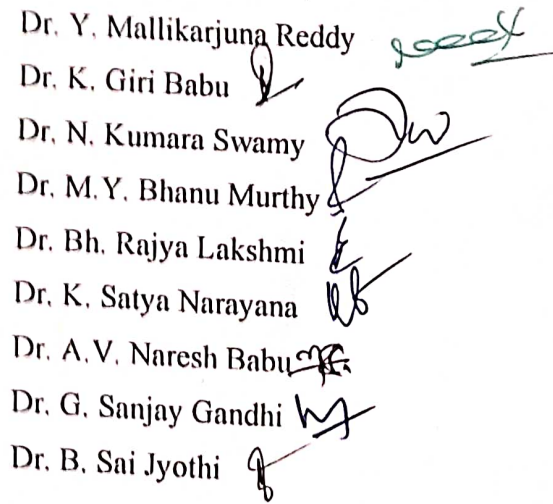 Dr. Y. Mallikarjuna Reddy
Dr. K. Giri Babu
Dr. N. Kumara Swamy
Dr. M.Y. Bhanu Murthy
Dr. Bh. Rajya Lakshmi
Dr. K. Satya Narayana
Dr. A.V. Naresh Babu
Dr. G. Sanjay Gandhi
Dr. B. Sai Jyothi